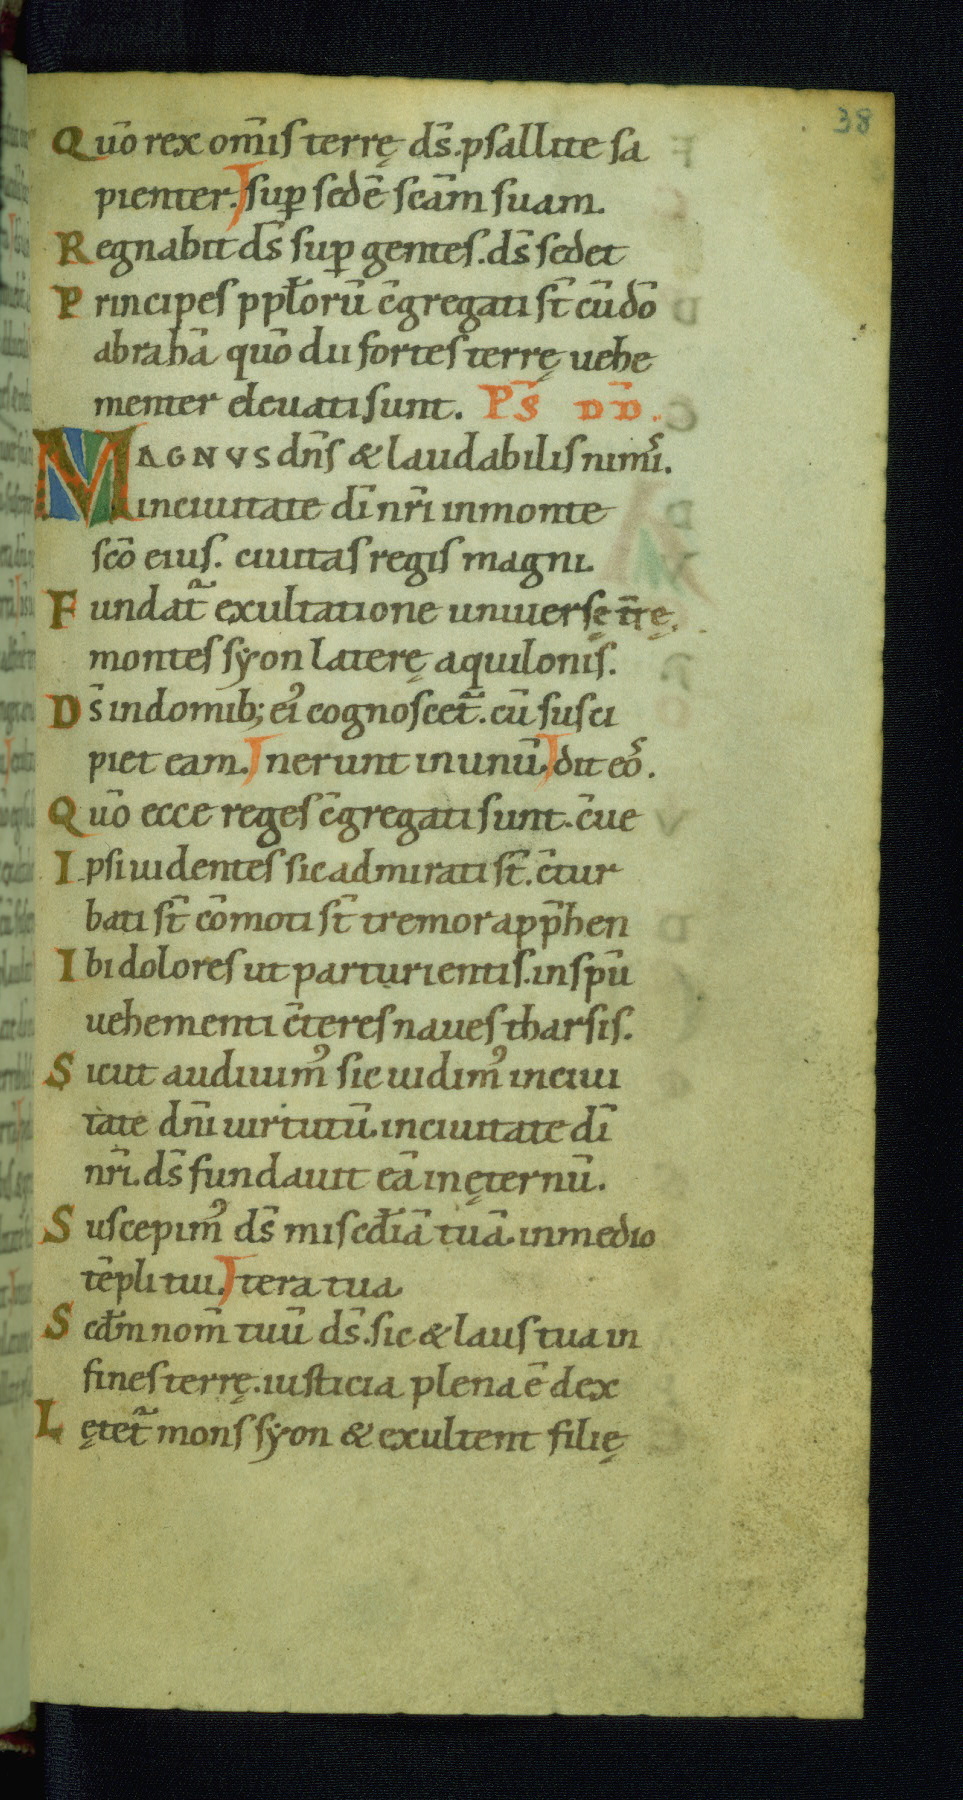 38
Quō rex om̄is terrę ds̄. psallite sa
pienter. sup̱ sedē scām suam.
Regnabit ds̄ sup̱ gentes. ds̄ sedet
Principes pp̄lorū c̄gregati st̄ cū dō
abrahā quō dii fortes terrę uehe
menter eleuati sunt. Ps̄ DD̄.
MAGNVS dn̄s & laudabilis nimꝰ.
in ciuitate dī nr̄i in monte
scō eius. ciuitas regis magni.
Fundat᷑ exultatione uniuersę tr̄ę.
montes syon laterę aquilonis.
Ds̄ in domib; eiꝰ cognoscet᷑. cū susci
piet eam. nerunt in unū. dit eoꝰ.
Quō ecce reges c̄gregati sunt. c̄ue
Ipsi uidentes sic admirati st̄. c̄tur
bati st̄ cōmoti st̄ tremor app̄hen
Ibi dolores ut parturientis. in spū
uehementi c̄teres naues tharsis.
Sicut audiuimꝰ sic uidimꝰ in ciui
tate dn̄i uirtutū. in ciuitate dī
nr̄i. ds̄ fundauit eā in ęternū.
Suscepimꝰ ds̄ misc̄diā tuā. in medio
tēpli tui. tera tua.
Scd̄m nom̄ tuū ds̄. sic & laus tua in
fines terrę. iusticia plena ē dex
Lętet᷑ mons syon & exultent filię